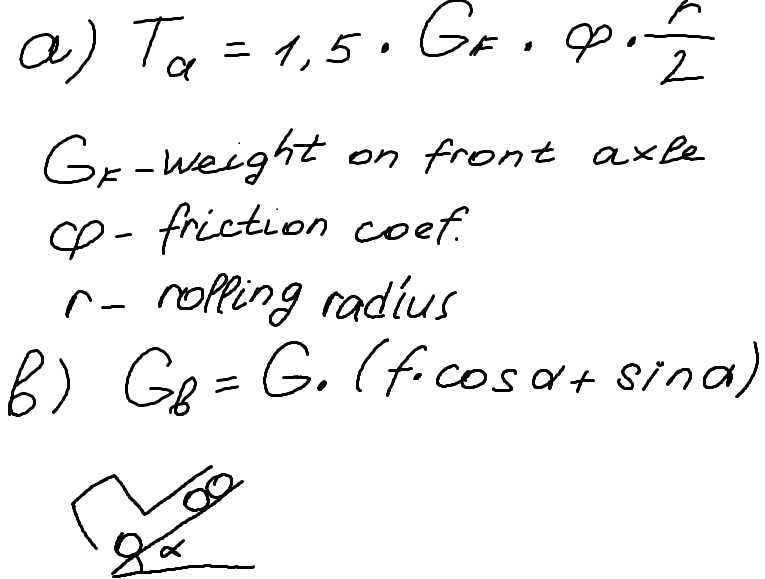 a) Ta = 1,5 · GF · φ · r/2
GF - weight on front axle
φ - friction coef.
r - rolling radius
b) Gb = G · (f · cos α + sin α)
α